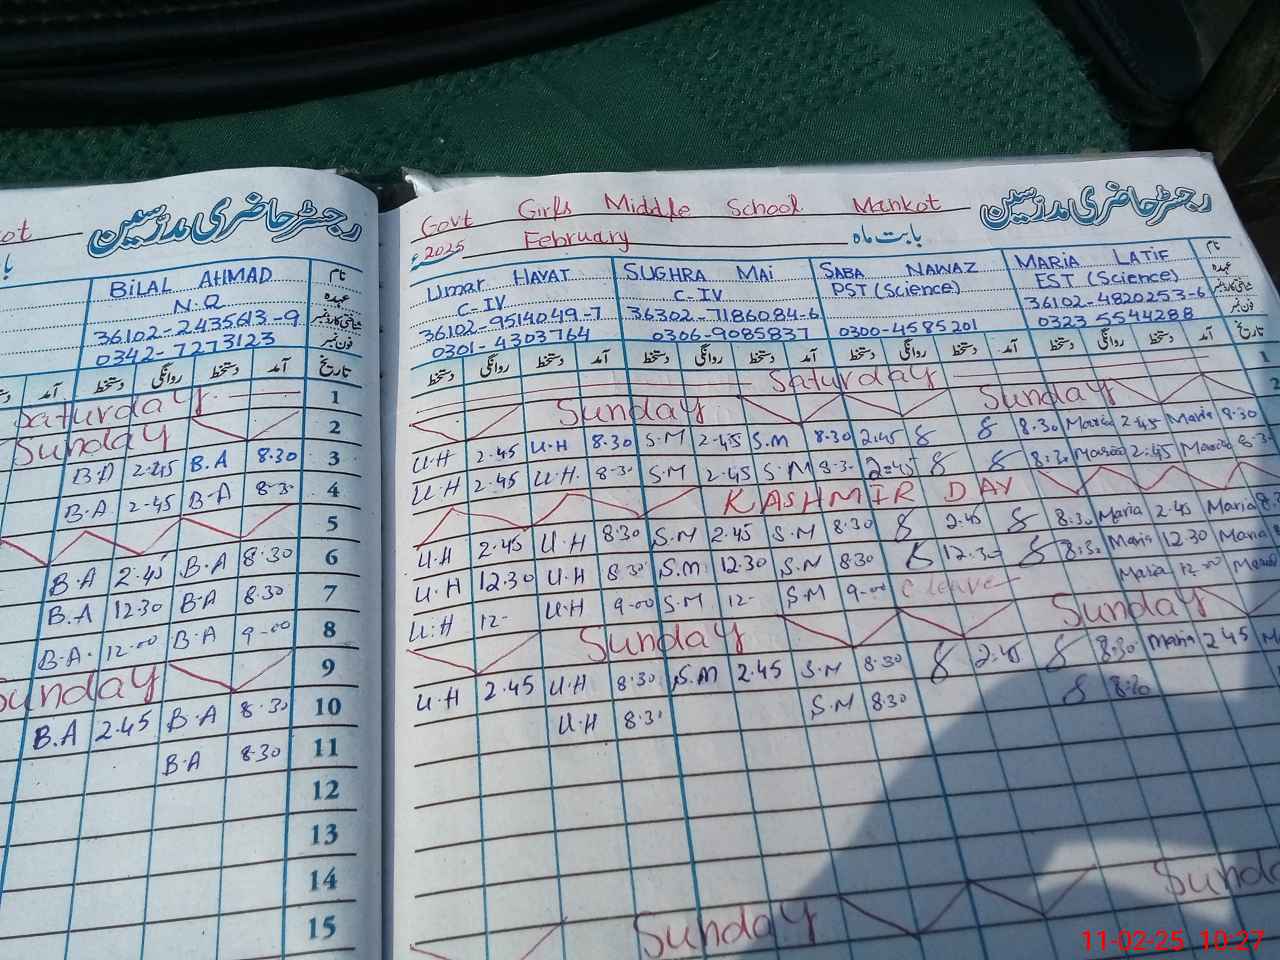 ot
رجسٹر حاضری مدرسین
BILAL AHMAD
نام
N.Q
عہدہ
36102-2435613-9
شناختی کارڈ نمبر
0342-7273123
فون نمبر
دستخط روانگی دستخط آمد تاریخ
Saturday 1
Sunday 2
B.A 2.45 B.A 8.30 3
B.A 2.45 B.A 8.3 4
5
B.A 2.45 B.A 8.30 6
B.A 12.30 B.A 8.30 7
B.A. 12.00 B.A 9.00 8
Sunday 9
B.A 2.45 B.A 8.30 10
B.A 8.30 11
12
13
14
15
Govt Girls Middle School Mankot
رجسٹر حاضری مدرسین
2025 February بابت ماہ
Umar HAYAT SUGHRA MAi SABA NAWAZ MARIA LATIF نام
C-IV C-IV PST (Science) EST (Science) عہدہ
36102-9514049-7 36302-7186084-6 36102-4820253-6 شناختی کارڈ نمبر
0301-4303764 0306-9085837 0300-4585201 0323 5544288 فون نمبر
دستخط روانگی دستخط آمد دستخط روانگی دستخط آمد دستخط روانگی دستخط آمد دستخط روانگی دستخط آمد تاریخ
Saturday 1
Sunday Sunday 2
U.H 2.45 U.H 8.30 S.M 2.45 S.M 8.30 2.45 8.30 Maria 2.45 Maria 8.30
U.H 2.45 U.H. 8.3 S.M 2.45 S.M 8.3 2.45 8.30 Maria 2.45 Maria 8.3
KASHMIR DAY
U.H 2.45 U.H 8.30 S.M 2.45 S.M 8.30 2.45 8.30 Maria 2.45 Maria 8
U.H 12.30 U.H 8.30 S.M. 12.30 S.M 8.30 12.30 8.30 Maria 12.30 Maria
U.H 12- U.H 9-00 S.M 12- S.M 9-00 C leave Maria 12.00 Maria
Sunday Sunday
U.H 2.45 U.H 8.30 S.M 2.45 S.M 8.30 2.45 8.30 Maria 2.45 M
U.H 8.3 S.M 8.30 8.30
Sunday Sund
11-02-25 10:27